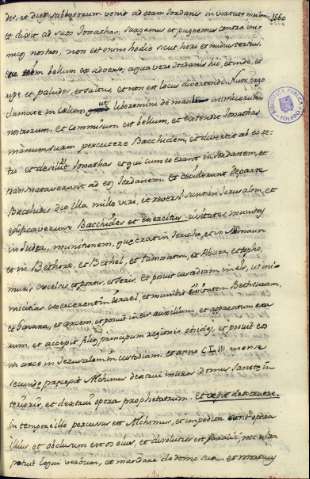 die sabbatorum venit ad oram Jordanis in virtute magna 1560
et dixit ad suos Jonathas, surgamus et pugnemus contra inimi
cos nostros, non est enim hodie sicut heri et nudiustertius
ecce enim bellum ex adverso, aqua vero Jordanis hinc et inde, et
ripe, et paludes, et saltus, et non est locus divertendi. Nunc ergo
clamate in cœlum, ut liberemini de manu inimicorum
vestrorum, et commissum est bellum, et extendit Jonathas
manum suam percutere Bacchidem, et divertit ab eo re-
tro et desiliit Jonathas et qui cum eo erant in Jordanem, et
transnataverunt ad eos Jordanem et ceciderunt de parte
Bacchidis die illa mille viri, et reversi sunt in Jerusalem, et
edificaverunt Bacchides et exercitus civitates munitas
in Judea, munitionem, que erat in Jericho, et in Ammaum
et in Bethoron, et Bethel, et Tamnatam, et
muris excelsis, et portis, et seris. et posuit custodiam in eis, ut inimi
micitias exercerent in Israel, et munivit civitatem Bethsuram,
et Gazaram, et arcem, et posuit in eis auxilium, et apparatum esca
rum, et accepit filios principum regionis obsides, et posuit eos
in arce in Jerusalem in custodiam. et anno mense
secundo precepit Alchimus destrui muros domus sancte in
terioris, et destrui opera prophetarum. et cepit destruere.
in tempore illo percussus est Alchimus, et impedita sunt opera
illius, et occlusum est os eius, et dissolutus est paralisi, nec ultra
potuit loqui verbum, et mandare de domo sua. et mortuus